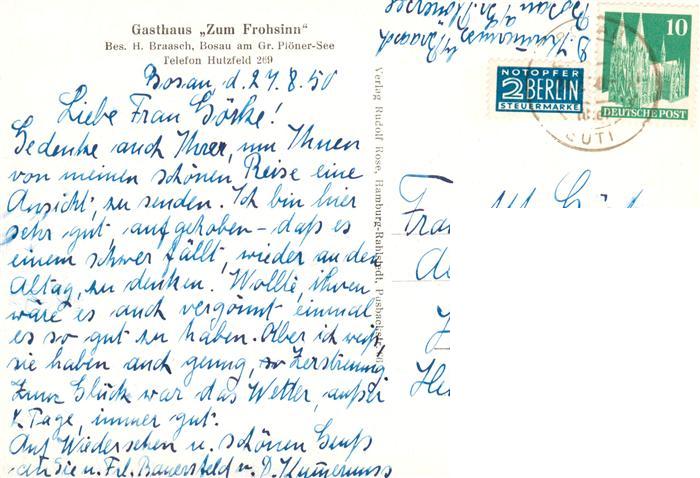 Gasthaus „Zum Frohsinn“
Bes. H. Braasch, Bosau am Gr. Plöner-See
Telefon Hutzfeld 269
Bosau d. 27.8.50
Liebe Frau Görke!
Gedenke auch Ihrer, um Ihnen
von meinen schönen Reise eine
Ansicht, zu senden. Ich bin hier
sehr gut, aufgehoben – daß es
einem schwer fällt, wieder an den
Altag, zu denken. Wollte, ihnen
wäre es auch vergönnt einmal
es so gut zu haben. Aber ich weiß,
sie haben auch genug, Zerstreuung
Zum Glück war das Wetter, außer
Tage, immer gut.
Auf Wiedersehen u. schönen Gruß
an Sie u. Frl. Bauersfeld u. D.
Verlag Rudolf Rose, Hamburg-Rahlstedt,
NOTOPFER
2 BERLIN
STEUERMARKE
10
DEUTSCHE POST
EUTI
Frau